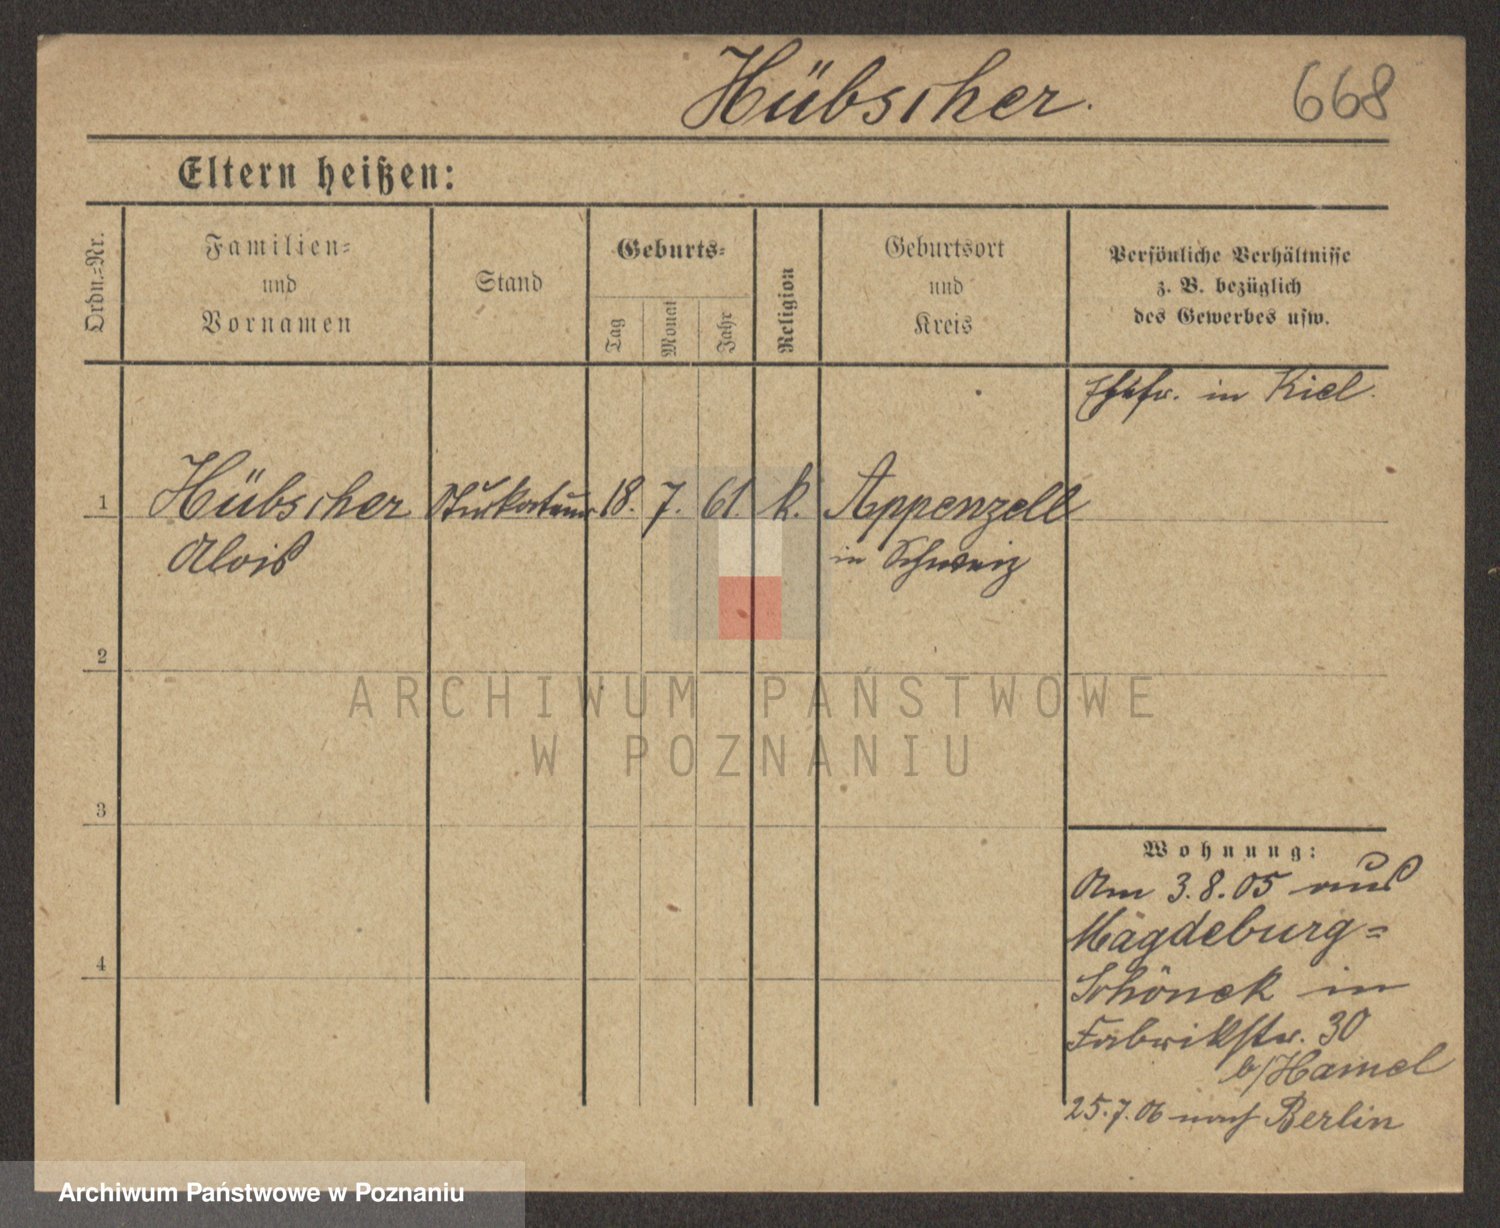 Hübscher. 668
Eltern heißen:
Ordn.=Nr.
Familien=
und
Vornamen
Stand
Geburts=
Tag
Monat
Jahr
Religion
Geburtsort
und
Kreis
Persönliche Verhältnisse
z. B. bezüglich
des Gewerbes usw.
Ehefr. in Kiel.
1 Hübscher Stukkateur 18. 7. 61. k. Appenzell
Alois in Schweiz
2
ARCHIWUM PAŃSTWOWE
W POZNANIU
3
Wohnung:
Am 3.8.05 aus
Magdeburg=
4
Schöneck in
Fabrikstr. 30
b/Hamel
25.7.06 nach Berlin
Archiwum Państwowe w Poznaniu